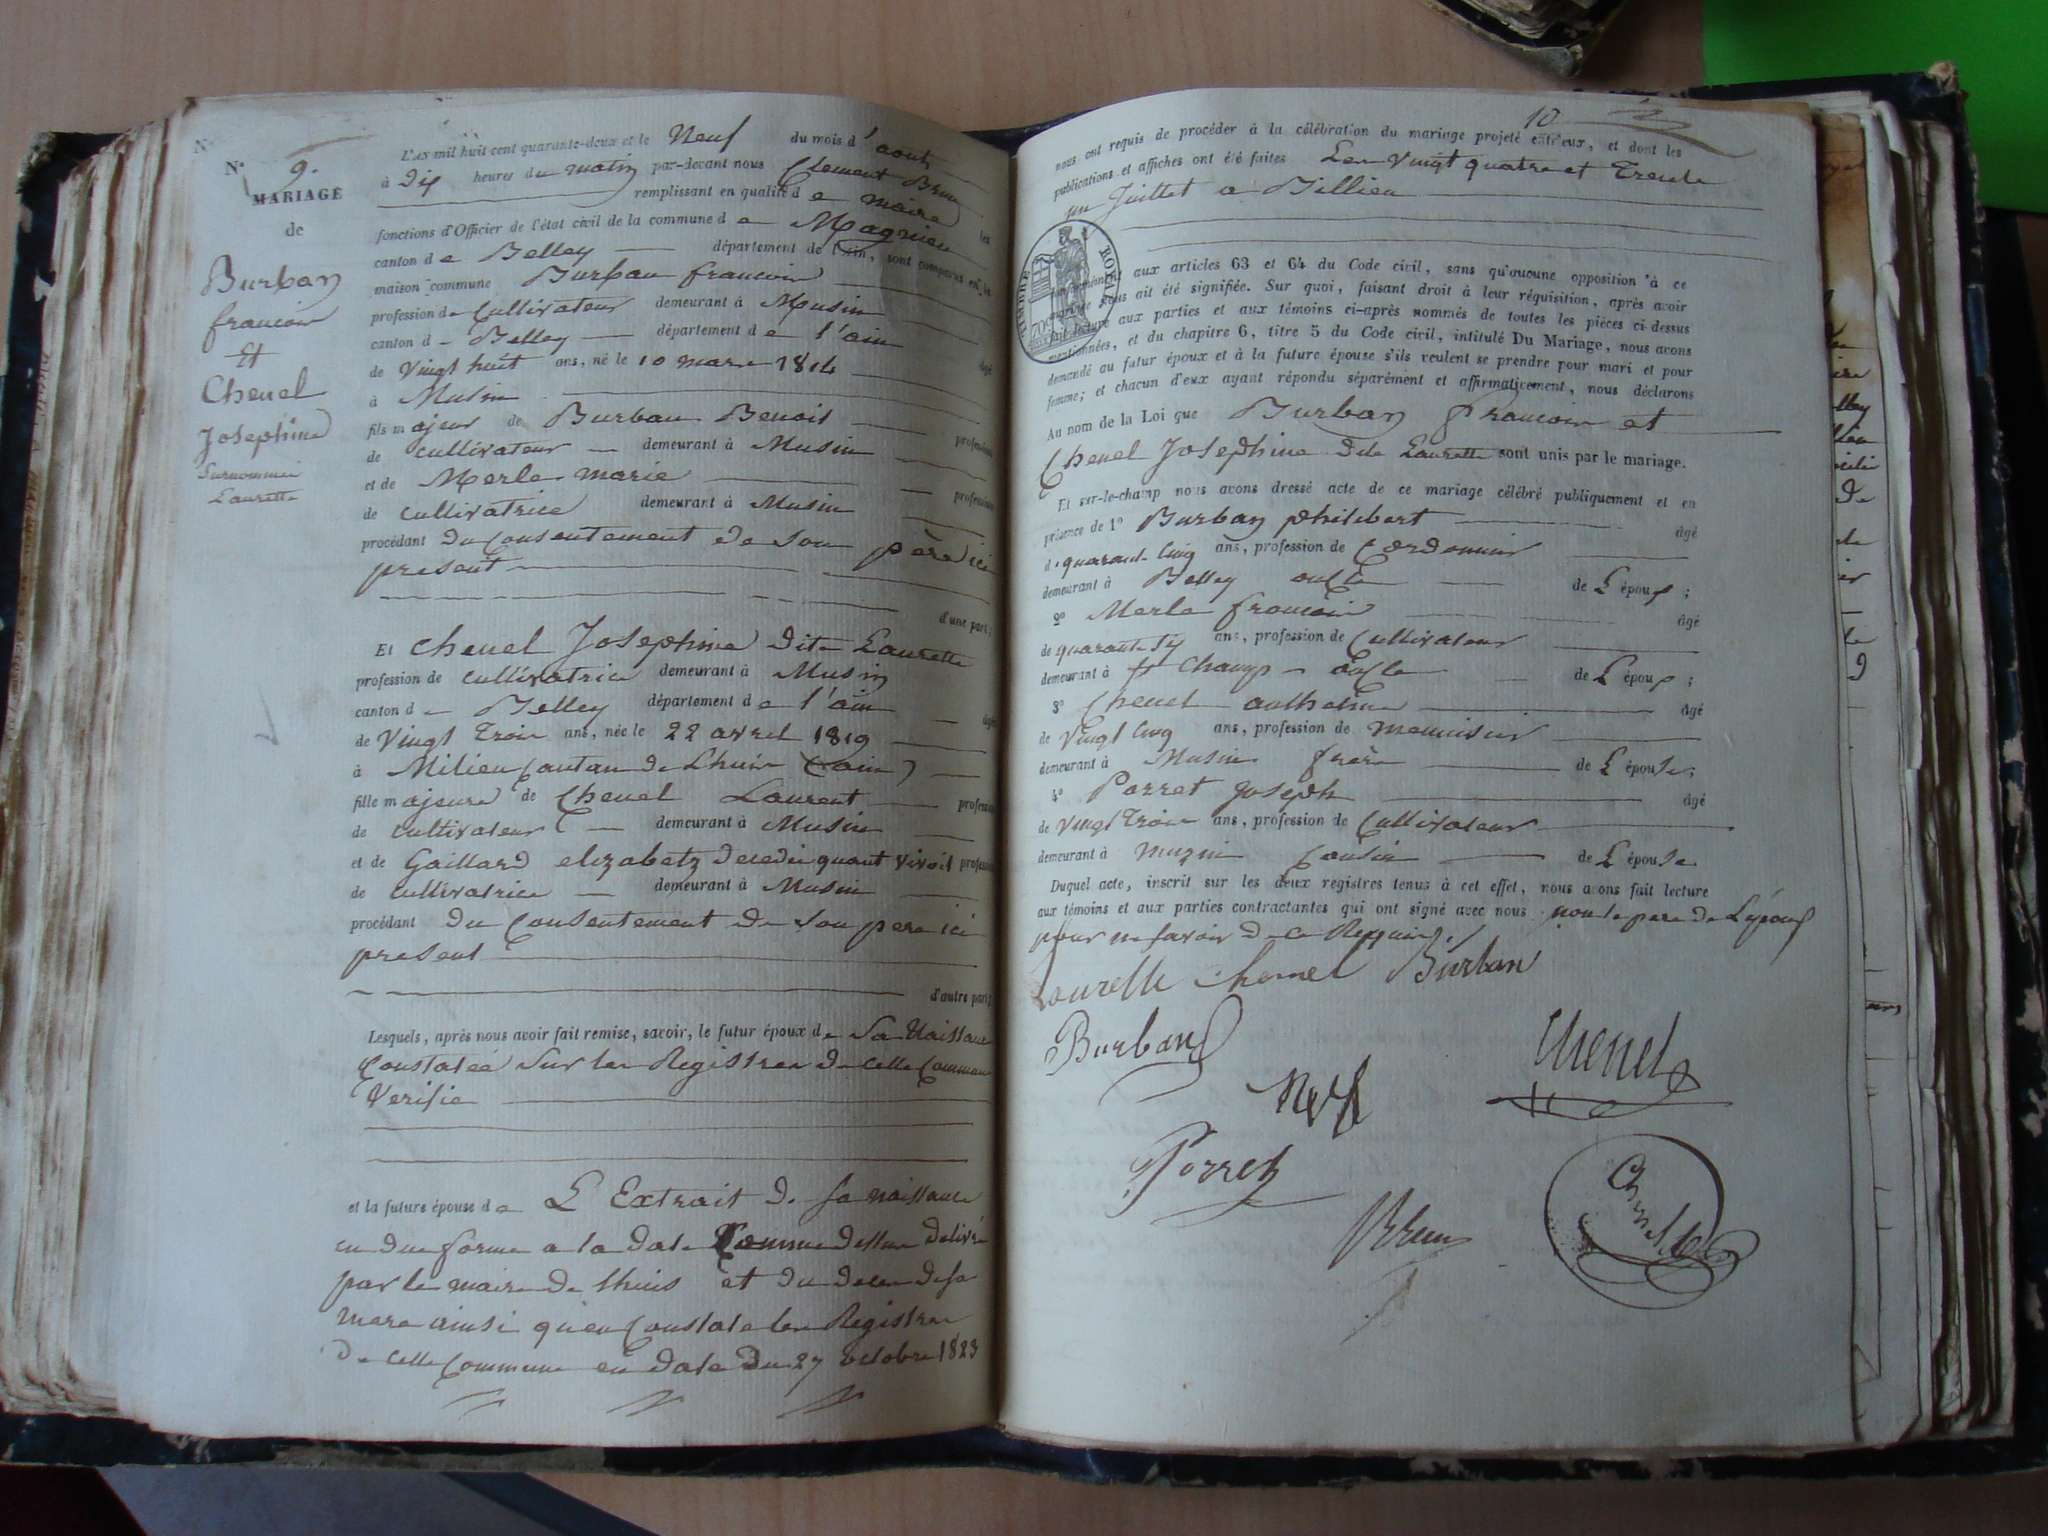 N° 9.
MARIAGE
de
Burban
francois
Et
Chenel
Josephine
Surnommée
Laurette
L'AN mil huit cent quarante-deux et le Neuf du mois d'aout
à Dix heures du matin par-devant nous Clement Brun
remplissant en qualité de maire les
fonctions d'Officier de l'état civil de la commune de Magnieu
canton de Belley département de l'Ain, sont comparus en la
maison commune Burban francois
profession de Cultivateur demeurant à Musin
canton de Belley département de l'ain âgé
de vingt huit ans, né le 10 mars 1814
à Musin
fils majeur de Burban Benoit profession
de cultivateur demeurant à Musin
et de Merle marie profession
de cultivatrice demeurant à Musin
procédant du Consentement de son père ici
present
d'une part;
Et Chenel Josephine dite Laurette
profession de cultivatrice demeurant à Musin
canton de Belley département de l'ain âgé
de vingt trois ans, née le 22 avril 1819
à Milieu Canton de Lhuis (ain)
fille majeure de Chenel Laurent profession
de cultivateur demeurant à Musin
et de Gaillard elizabetz decedée quant vivoit profession
de cultivatrice demeurant à Musin
procédant du Consentement de son pere ici
present
d'autre part;
Lesquels, après nous avoir fait remise, savoir, le futur époux de sa Naissance
Constatée sur les Registres de cette Commune
Verifié
et la future épouse de L'Extrait de sa naissance
en due forme a la date Comme dessus delivré
par le maire de lhuis et du deces de sa
mere ainsi qu'en Constate les Registres
de cette Commune en date du 27 octobre 1823
10
nous ont requis de procéder à la célébration du mariage projeté entr'eux, et dont les
publications et affiches ont été faites Les vingt quatre et Trente
un Juillet a Billieu
TIMBRE ROYAL
70c
conformément aux articles 63 et 64 du Code civil, sans qu'aucune opposition à ce
mariage nous ait été signifiée. Sur quoi, faisant droit à leur réquisition, après avoir
fait lecture aux parties et aux témoins ci-après nommés de toutes les pièces ci-dessus
mentionnées, et du chapitre 6, titre 5 du Code civil, intitulé Du Mariage, nous avons
demandé au futur époux et à la future épouse s'ils veulent se prendre pour mari et pour
femme; et chacun d'eux ayant répondu séparément et affirmativement, nous déclarons
Au nom de la Loi que Burban francois et
Chenel Josephine dite Laurette sont unis par le mariage.
Et sur-le-champ nous avons dressé acte de ce mariage célébré publiquement et en
présence de 1° Burban philibert âgé
de quarante Cinq ans, profession de Cordonnier
demeurant à Belley oncle de L'époux;
2° Merle francois âgé
de quarante six ans, profession de Cultivateur
demeurant à St Champ oncle de L'époux;
3° Chenel anthelme âgé
de vingt Cinq ans, profession de menuisier
demeurant à Musin frère de L'épouse;
4° Porret Joseph âgé
de vingt trois ans, profession de Cultivateur
demeurant à muzin Cousin de L'épouse.
Duquel acte, inscrit sur les deux registres tenus à cet effet, nous avons fait lecture
aux témoins et aux parties contractantes qui ont signé avec nous non le pere de L'époux
pour ne savoir de ce Requis
Laurette Chenel Burban
Burban
Chenel
Porret
Brun
Chenel